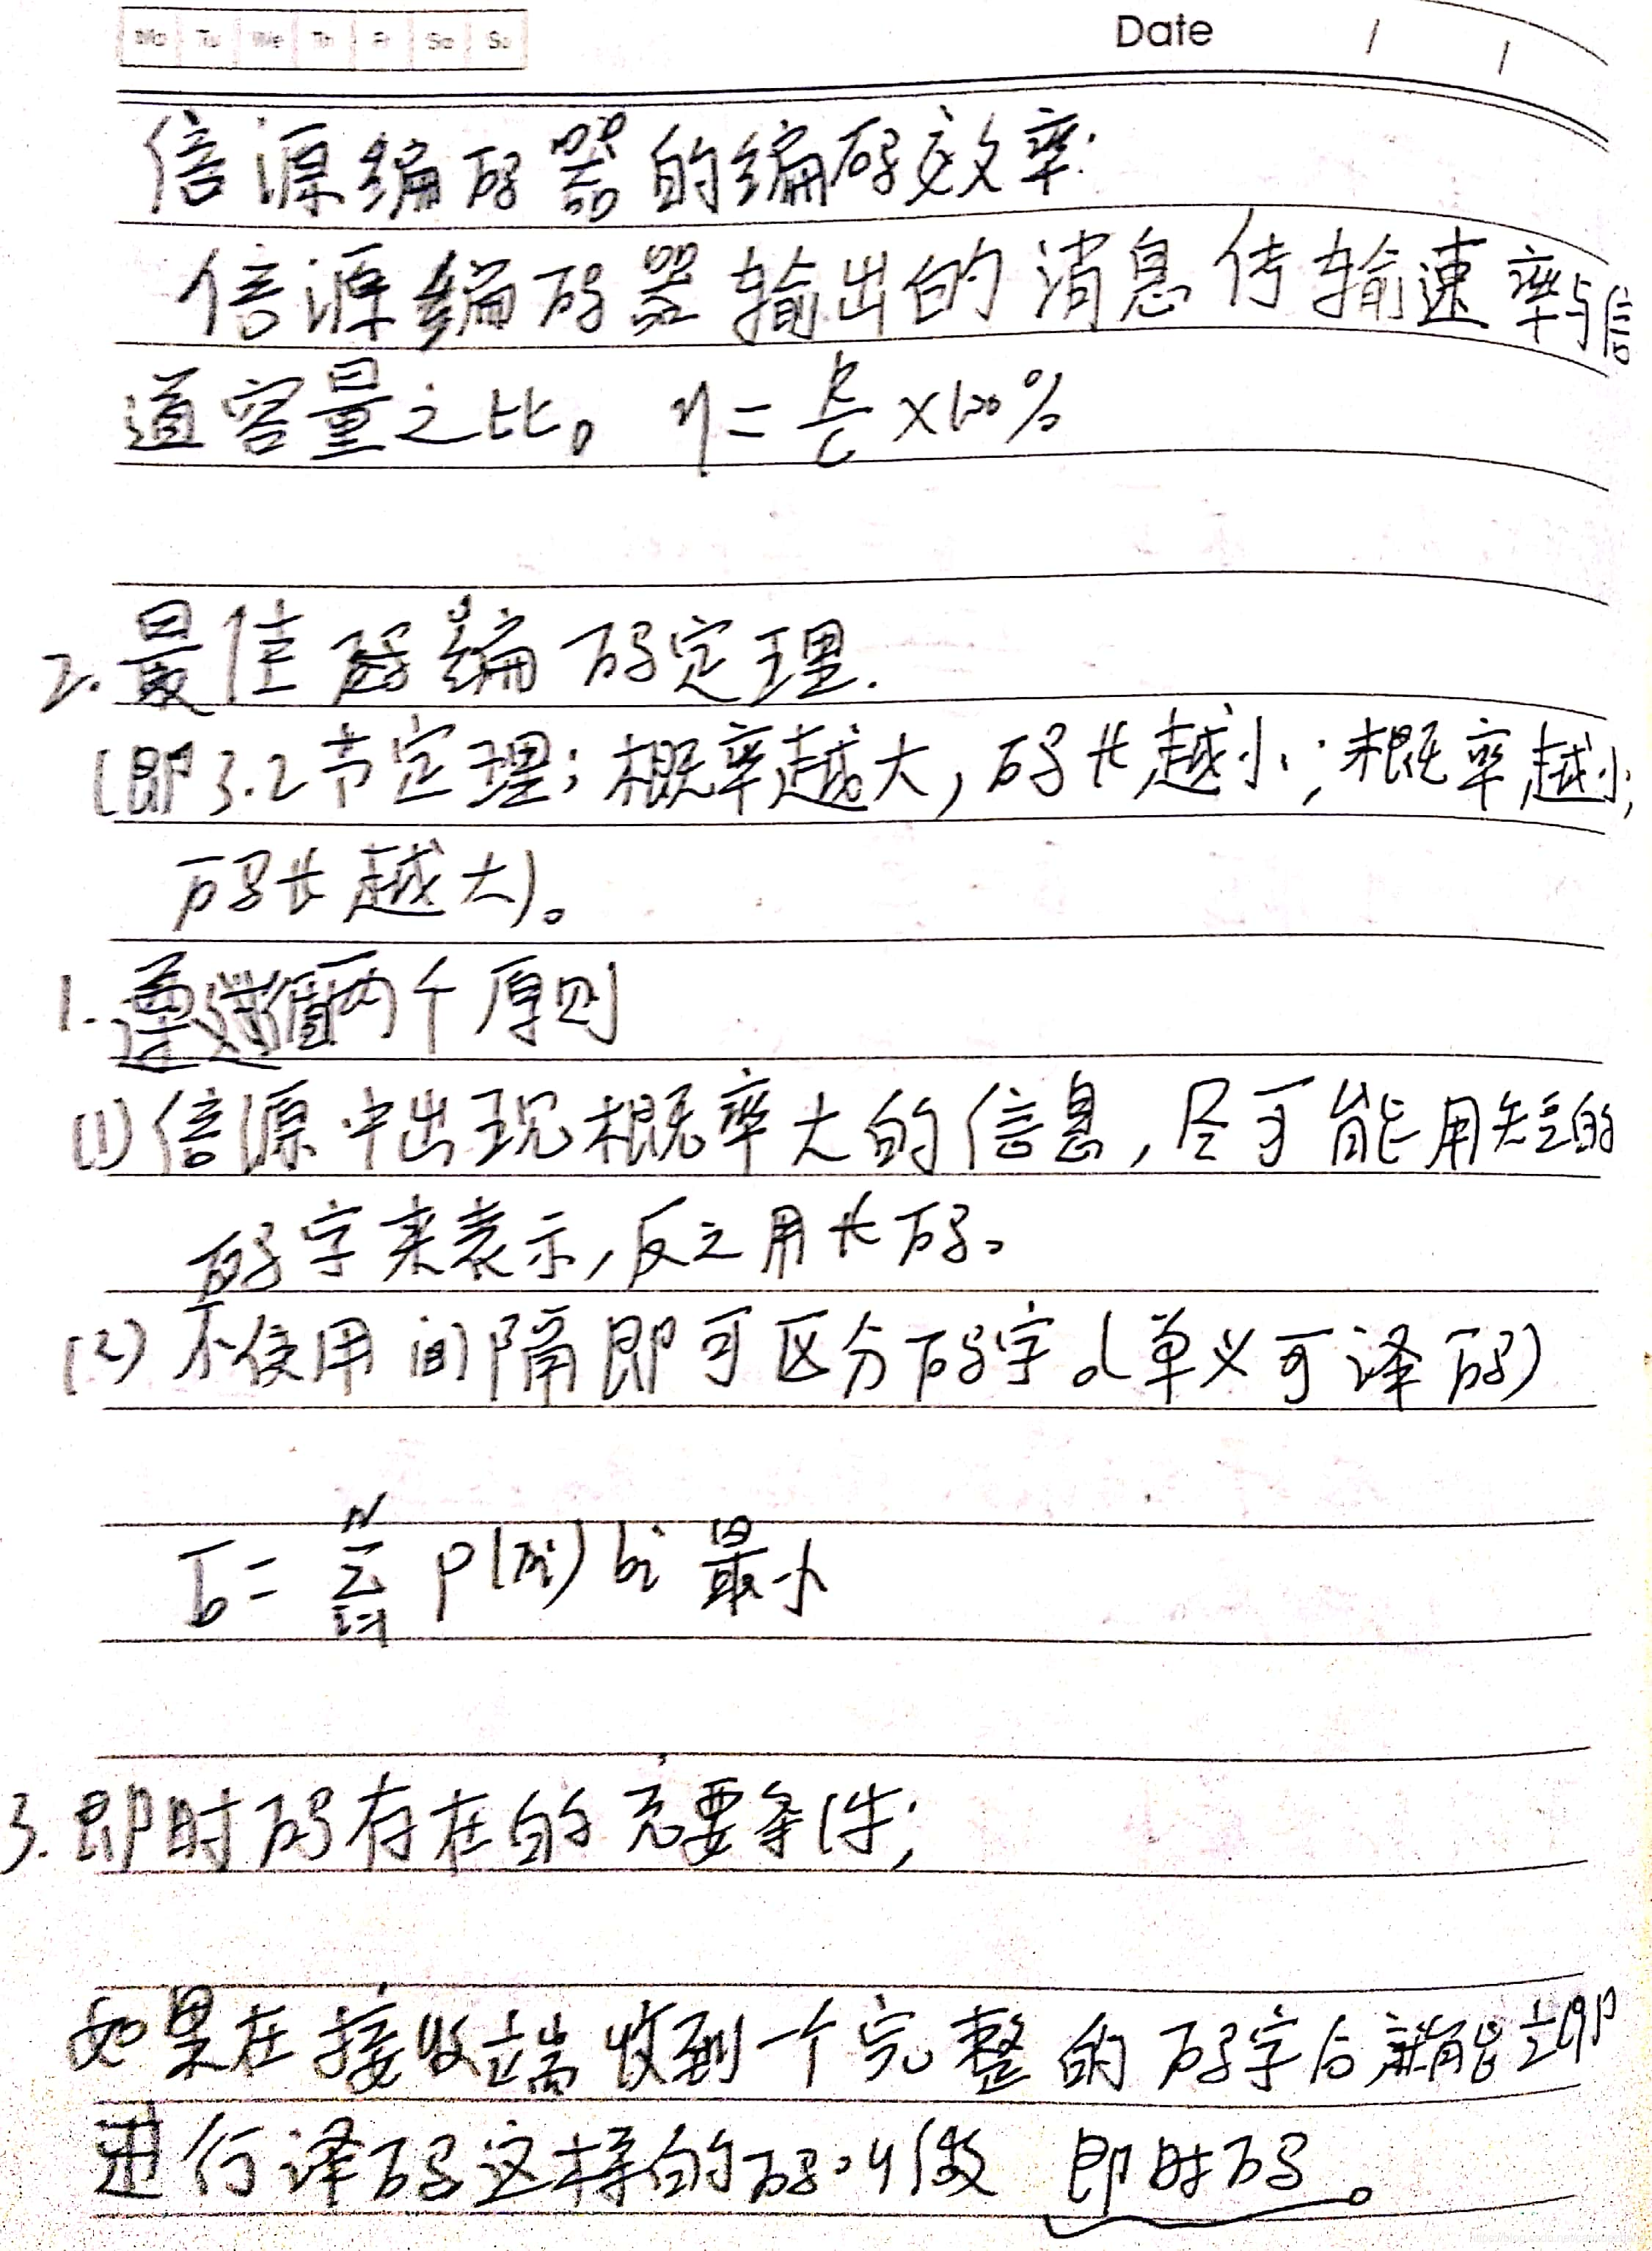 Mo Tu We Th Fr Sa Su
Date / /
信源编码器的编码效率:
信源编码器输出的消息传输速率与信
道容量之比。 η = R/C ×100%
2. 最佳码编码定理.
(即3.2节定理; 概率越大, 码长越小; 概率越小,
码长越大)。
1. 遵循两个原则
(1) 信源中出现概率大的信息, 尽可能用短的
码字来表示, 反之用长码。
(2) 不使用间隔即可区分码字。(单义可译码)
b̄ = Σ_{i=1}^{N} P(xi) bi 最小
3. 即时码存在的充要条件;
如果在接收端收到一个完整的码字后就能立即
进行译码这样的码叫做 即时码。